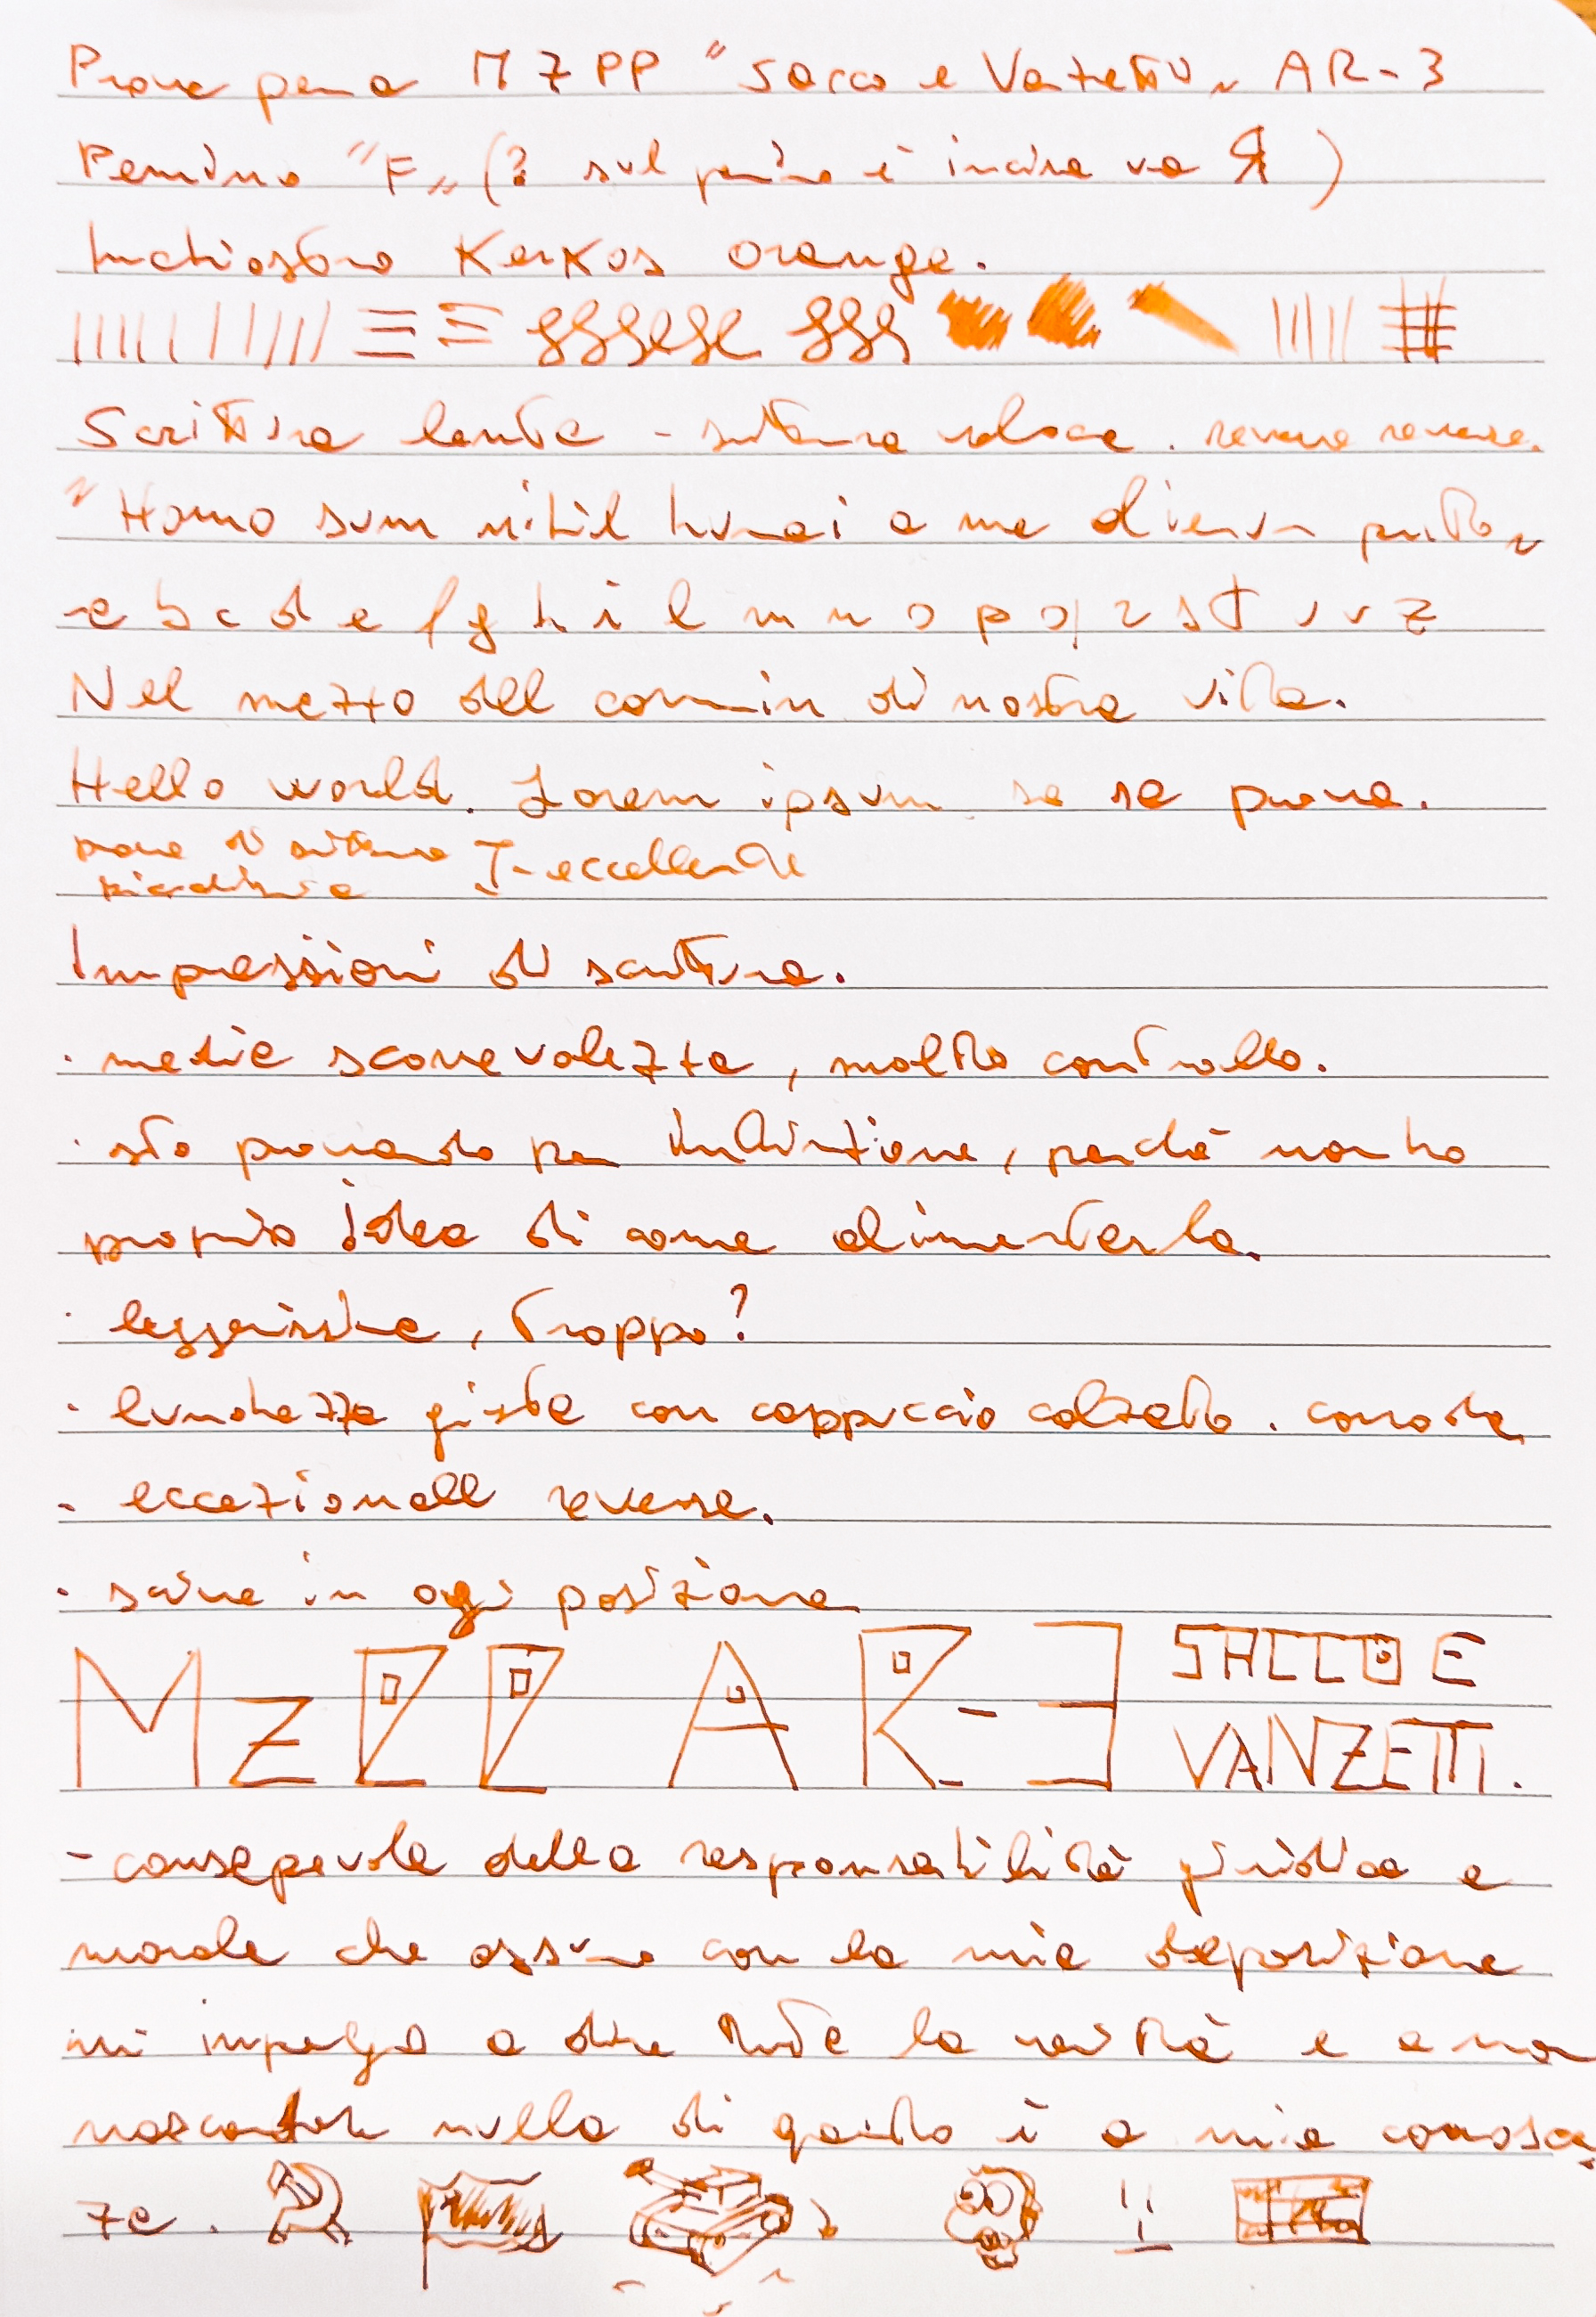 Prova penna MZPP "Sacco e Vanzetti" AR-3
Pennino "F" (? sul pennino è incisa una Я)
Inchiostro KerKos orange.
Scrittura lenta - scrittura veloce. reverse reverse.
"Homo sum nihil humai a me alienum puto"
a b c d e f g h i l m n o p q r s t u v z
Nel mezzo del cammin di nostra vita.
Hello world. Lorem ipsum se se prova.
prova di scrittura
I- eccellente
Impressioni di scrittura.
· media scorrevolezza, molto controllo.
· sto provando per intinzione, perchè non ho
proprio idea di come alimentarla.
· leggerissima, troppo?
· lunghezza giusta con cappuccio calzato. comoda
- eccezionale reverse.
· scrive in ogi posizione
MZPP AR-3 SACCO E
VANZETTI.
- consapevole della responsabilità giuridica e
morale che assumo con la mia deposizione
mi impegno a dire tutta la verità e a non
nascondere nulla di quanto è a mia conoscen
za.